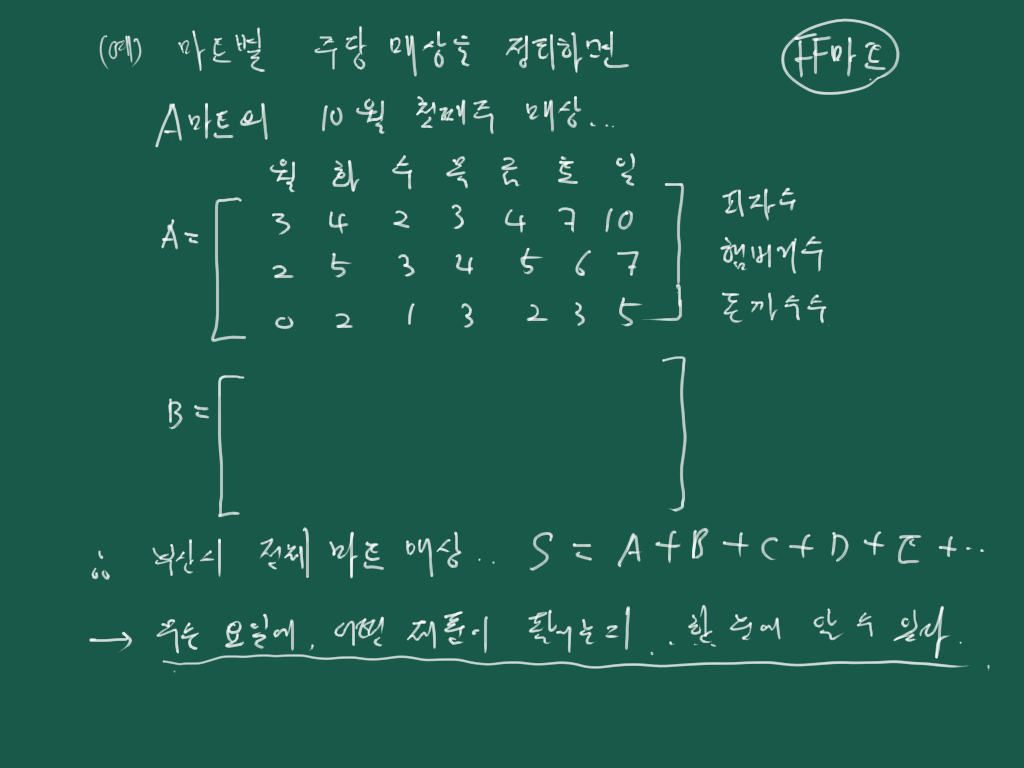 (예) 마트별 주당 매상을 정리하면
FF마트
A마트의 10월 첫째주 매상...
월 화 수 목 금 토 일
A = [ 3 4 2 3 4 7 10 피자수
2 5 3 4 5 6 7 햄버거수
0 2 1 3 2 3 5 ] 돈까스수
B = [ ]
∴ 부산시 전체 마트 매상.. S = A + B + C + D + E + ..
→ 무슨 요일에, 어떤 제품이 팔리는지.. 한 눈에 알 수 있다.